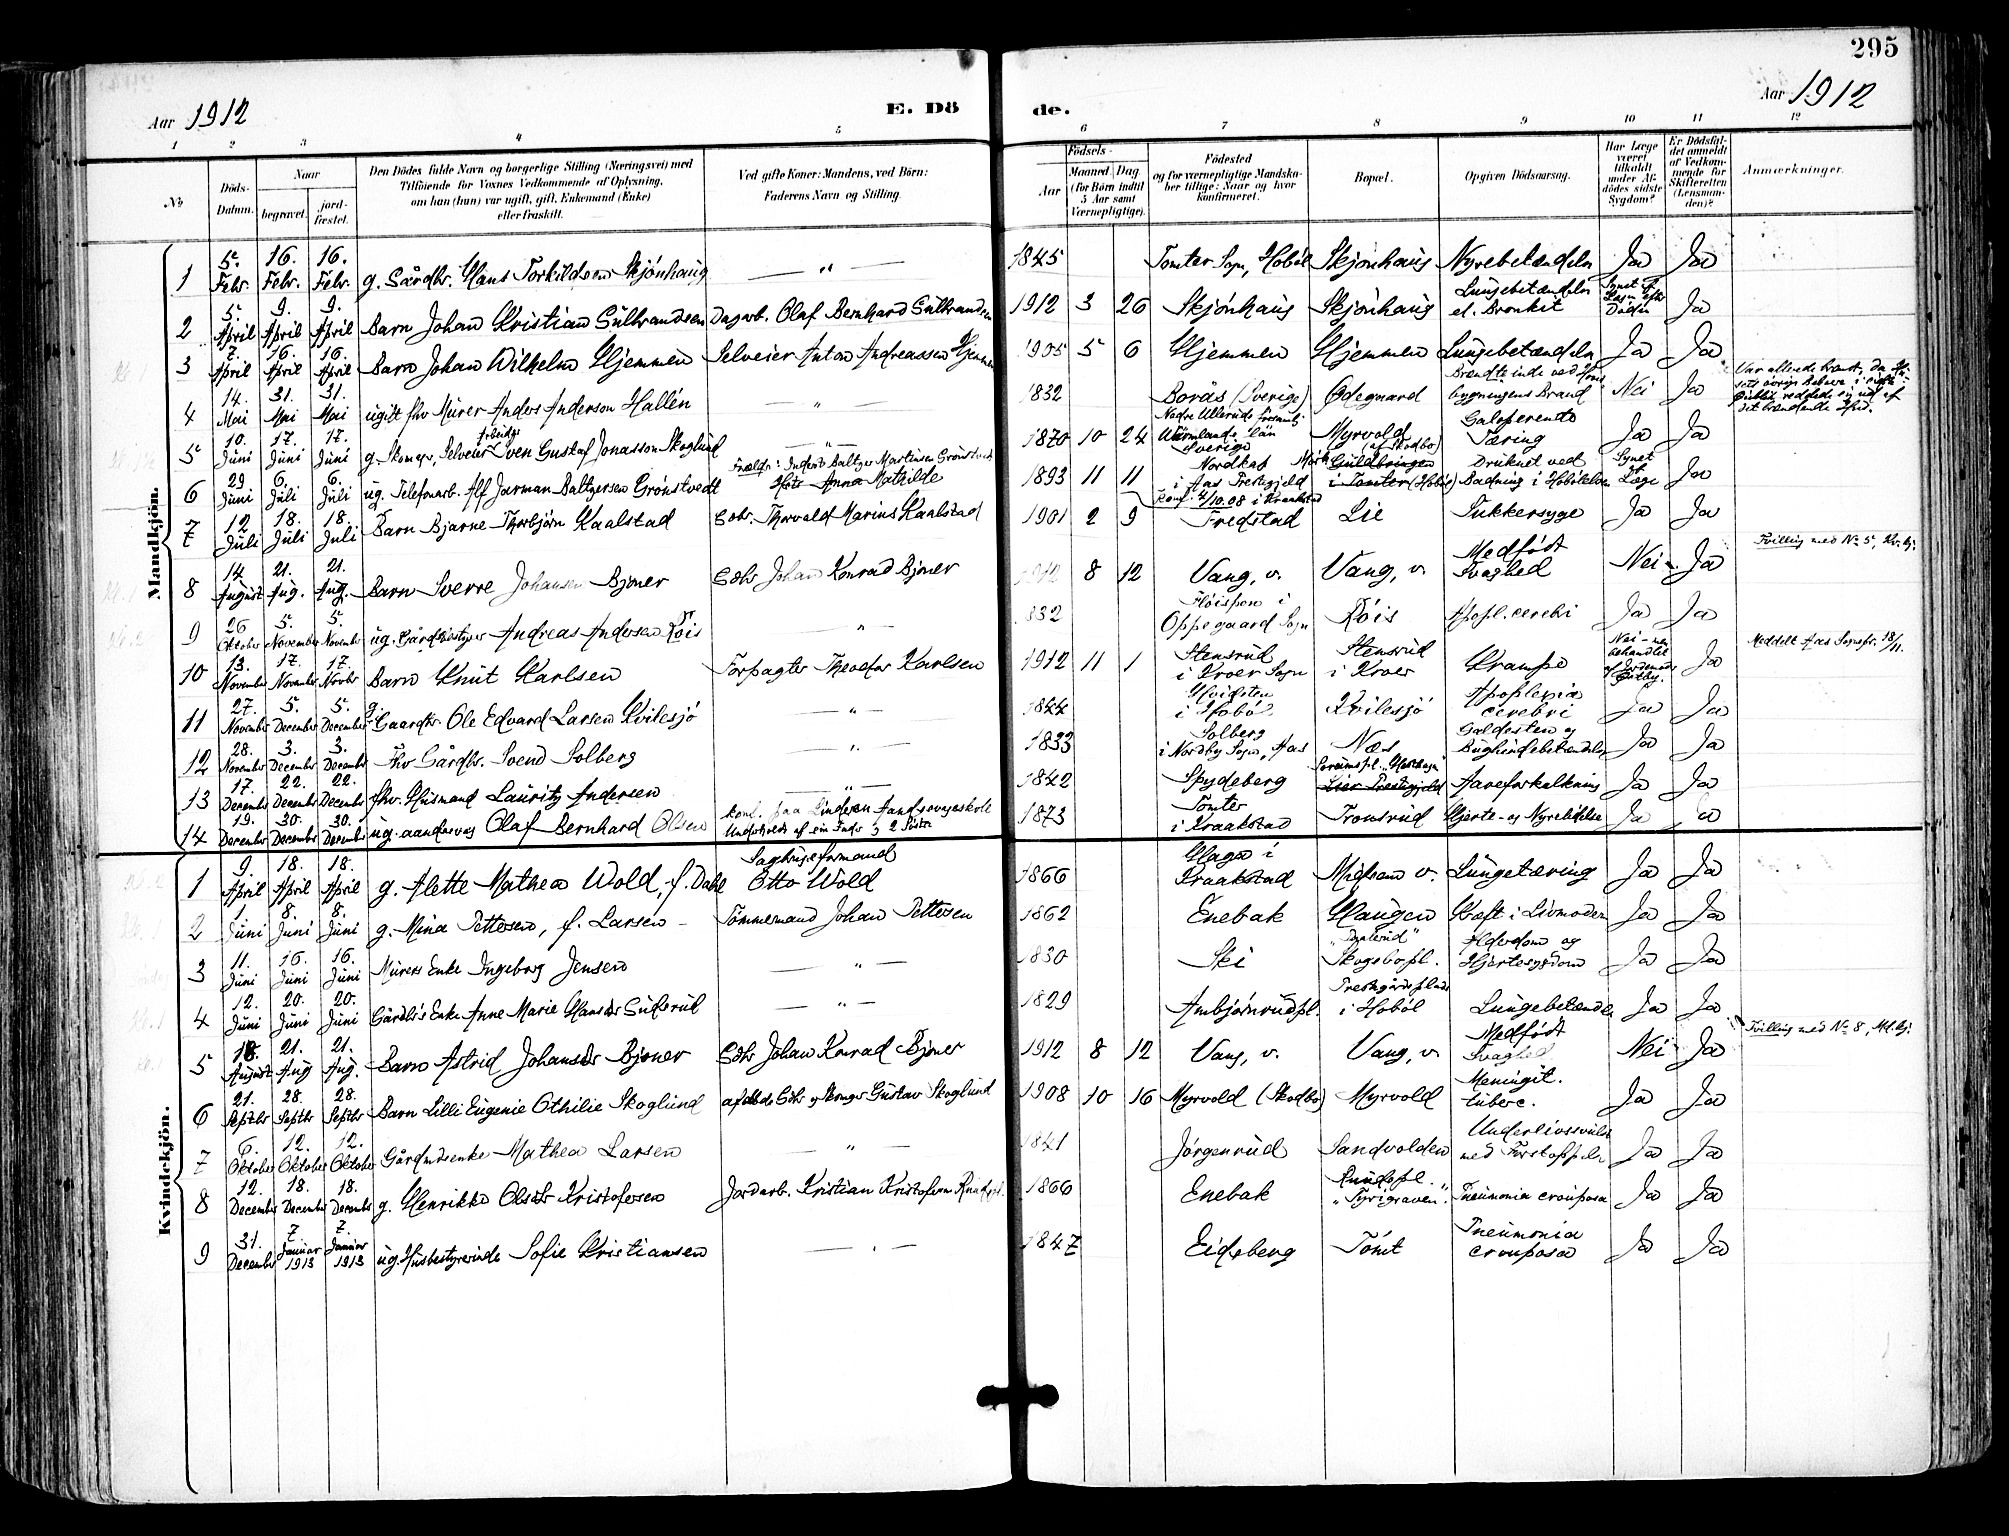 295
Aar 1912
E. Dö
de.
Aar 1912
1 2 3 4 5 6 7 8 9 10 11 12
No
Döds-Datum.
Naar
begravet.
jord-fæstet.
Den Dödes fulde Navn og borgerlige Stilling (Næringsvei) med
Tilföiende for Voxnes Vedkommende af Oplysning,
om han (hun) var ugift, gift, Enkemand (Enke)
eller fraskilt.
Ved gifte Koner: Mandens, ved Börn:
Faderens Navn og Stilling.
Födsels-
Aar
Maaned Dag
(for Börn indtil
5 Aar samt
Værnepligtige).
Födested
og for værnepligtige Mandska-
ber tillige: Naar og hvor
konfirmeret.
Bopæl.
Opgiven Dödsaarsag.
Har Læge
været
tilkaldt
under Af-
dödes sidste
Sygdom?
Er Dödsfal-
det anmeldt
af Vedkom-
mende for
Skifteretten
(Lensman-
den)?
Anmærkninger.
Mandkjön.
1 5. Febr. 16. Febr. 16. Febr. g. Gårdbr. Hans Torkildsen Skjönhaug — " — 1845 Tomter Sogn, Hobøl Skjönhaug Nyrebetændelse Ja Ja
2 5. April 9. April 9. April Barn Johan Kristian Gulbrandsen Dagarb. Olaf Bernhard Gulbrandsen 1912 3 26 Skjönhaug Skjönhaug Lungebetændelse el. Bronkit Synet af Læge efter Døden Ja
3 7. April 16. April 16. April Barn Johan Wilhelm Hjemmen Selveier Anton Andreassen Hjemmen 1905 5 6 Hjemmen Hjemmen Lungebetændelse Ja Ja
4 14. Mai 31. Mai 31. Mai ugift fhv. Murer Anders Anderson Hallén — " — 1832 Borås (Sverige) Ødegaard Brændte inde ved bygningens Brand Nei Ja
5 10. Juni 17. Juni 17. Juni g. Skomager, Selveier Sven Gustaf Jonasson Skoglund — " — 1870 10 24 Nedre Ullerud Värmlands län Sverige Myrvold (af Skodbo) Galoperende Tæring Ja Ja
6 29. Juni 6. Juli 6. Juli ug. Telefonarb. Alf Jarman Baltzersen Grönstvedt Baltzer Martinsen Grönstvedt Anna Mathilde 1893 11 11 Nordkap i Aas Prestegjeld Konf. 4/10.08 i Kraakstad i Tomter (Hobøl) Druknet ved Badning i Hobølelven Synet Læge Ja
7 12. Juli 18. Juli 18. Juli Barn Bjarne Thorbjørn Kaalstad Gbr. Thorvald Marius Kaalstad 1901 2 9 Fredstad Lie Sukkersyge Ja Ja
8 14 August 21. Aug. 21. Aug. Barn Sverre Johansen Bjoner Gbr. Johan Konrad Bjoner 1912 8 12 Vang, v. Vang, v. Medfödt Svaghed Nei Ja Tvilling med No 5, Kv.kj.
9 26 Oktober 5. November 5. November ug. Gårdbestyrer Andreas Andersen Røis " 832 Fløispen i Oppegaard Sogn Røis Apopl. cerebri Ja Ja
10 13. November 17. November 17. Novbr. Barn Knut Karlsen Forpagter Theodor Karlsen 1912 11 1 Stensrud i Kroer Sogn Stensrud i Kroer Krampe Nei - men behandlet af Jordmoder Ja Meddelt Aas Sognepr. 18/11.
11 27. November 5. December 5. December g. Gaardbr. Ole Edvard Larsen Kvilesjø — " — 1844 Hvidsten i Hobøl Kvilesjö Apoplexia cerebri Ja Ja
12 28. November 3. December 3. December Fhv. Gårdbr. Svend Solberg — " — 1833 Solberg i Nordby Sogn, Aas Næs Galdesten og Bughindebetændelse Ja Ja
13 17. December 22. December 22. December fhv. Husmand Lauritz Andersen — " — 1842 Spydeberg Lier Prestegjeld Aareforkalkning Ja Ja
14 19. December 30. December 30. December ug. aandssvag Olaf Bernhard Olsen konf. paa Lindøen Aandssvageskole 1873 Tomter i Kraakstad Tronsrud Hjerte- og Nyrelidelse Ja Ja
Kvindekjön.
1 9. April 18. April 18. April g. Alette Mathea Wold, f. Dahl Sagbrugsformand Otto Wold 1866 Haga i Kraakstad Midsem v. Lungetæring Ja Ja
2 1 Juni 8. Juni 8. Juni g. Mina Pettersen, f. Larsen - Tömmermand Johan Pettersen 1862 Enebak Haugen Kræft i Livmoder Ja Ja
3 11. Juni 16. Juni 16. Juni Murers Enke Ingeborg Jensen — " — 1830 Ski Skogsbopl. Alderdom og Hjertesygdom Ja Ja
4 12. Juni 20. Juni 20. Juni Gårdbr's Enke Anne Marie Hansdr Guderud — " — 1829 Ambjørnrudpl. Prestegårdsplads i Hobøl Lungebetændelse Ja Ja
5 18. August 21. Aug 21. Aug. Barn Astrid Johansdr Bjoner Gbr. Johan Konrad Bjoner 1912 8 12 Vang, v. Vang, v. Medfödt Svaghed Nei Ja Tvilling med No 8, M.kj.
6 21. Septbr 28. Septbr 28. Septbr Barn Lilli Eugenie Othilie Skoglund afdøde Gbr og Skomager Gustav Skoglund 1908 10 16 Myrvold (Skodbo) Myrvold Meningit. tuberc. Ja Ja
7 6. Oktober 12. Oktober 12. Oktober Gårdmdsenke Mathea Larsen " — 1841 Jørgenrud Sandvolden Underlivssvulst med Forstoppelse Ja Ja
8 12. December 18. December 18. December g. Henrikke Olsdtr Kristofersen Jordarb. Kristian Kristofersen Rundopl. 1866 Enebak Rundopl. "Tyrigraven". Pneumonia crouposa Ja Ja
9 31. December 7. Januar 1913 7. Januar 1913 ug. Husbestyrerinde Sofie Kristiansen — " — 1847 Eidsberg Tömt Pneumonia crouposa Ja Ja